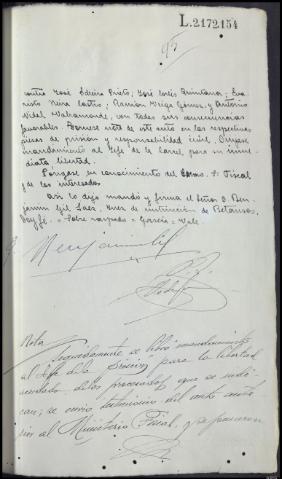 L.2172154
95
contra José Edreira Prieto, José Cortés Quintana; Eva-
risto Neira Castro; Ramón Veiga Gomez, y Antonio
Vidal Valamonde, con todas sus consecuencias
favorables. Dedúzcase nota de este auto en las respectivas
piezas de prisión y responsabilidad civil. Diríjase
mandamiento al Jefe de la Carcel, para su inme-
diata libertad.
Póngase en conocimiento del Excmo. S. Fiscal
y de los interesados
Así lo dejo mandó y firma el Señor D. Ben-
jamin Gil Saez, Juez de instrucción de Betanzos,
doy fé.= Sobre raspado = Garcia = Vale.
Benjamin Gil
Nota
Seguidamente se libró mandamiento
al Jefe de la Prisión para la libertad
de los procesados que se indi-
can; se envió testimonio del auto ante-
rior al Ministerio Fiscal, y